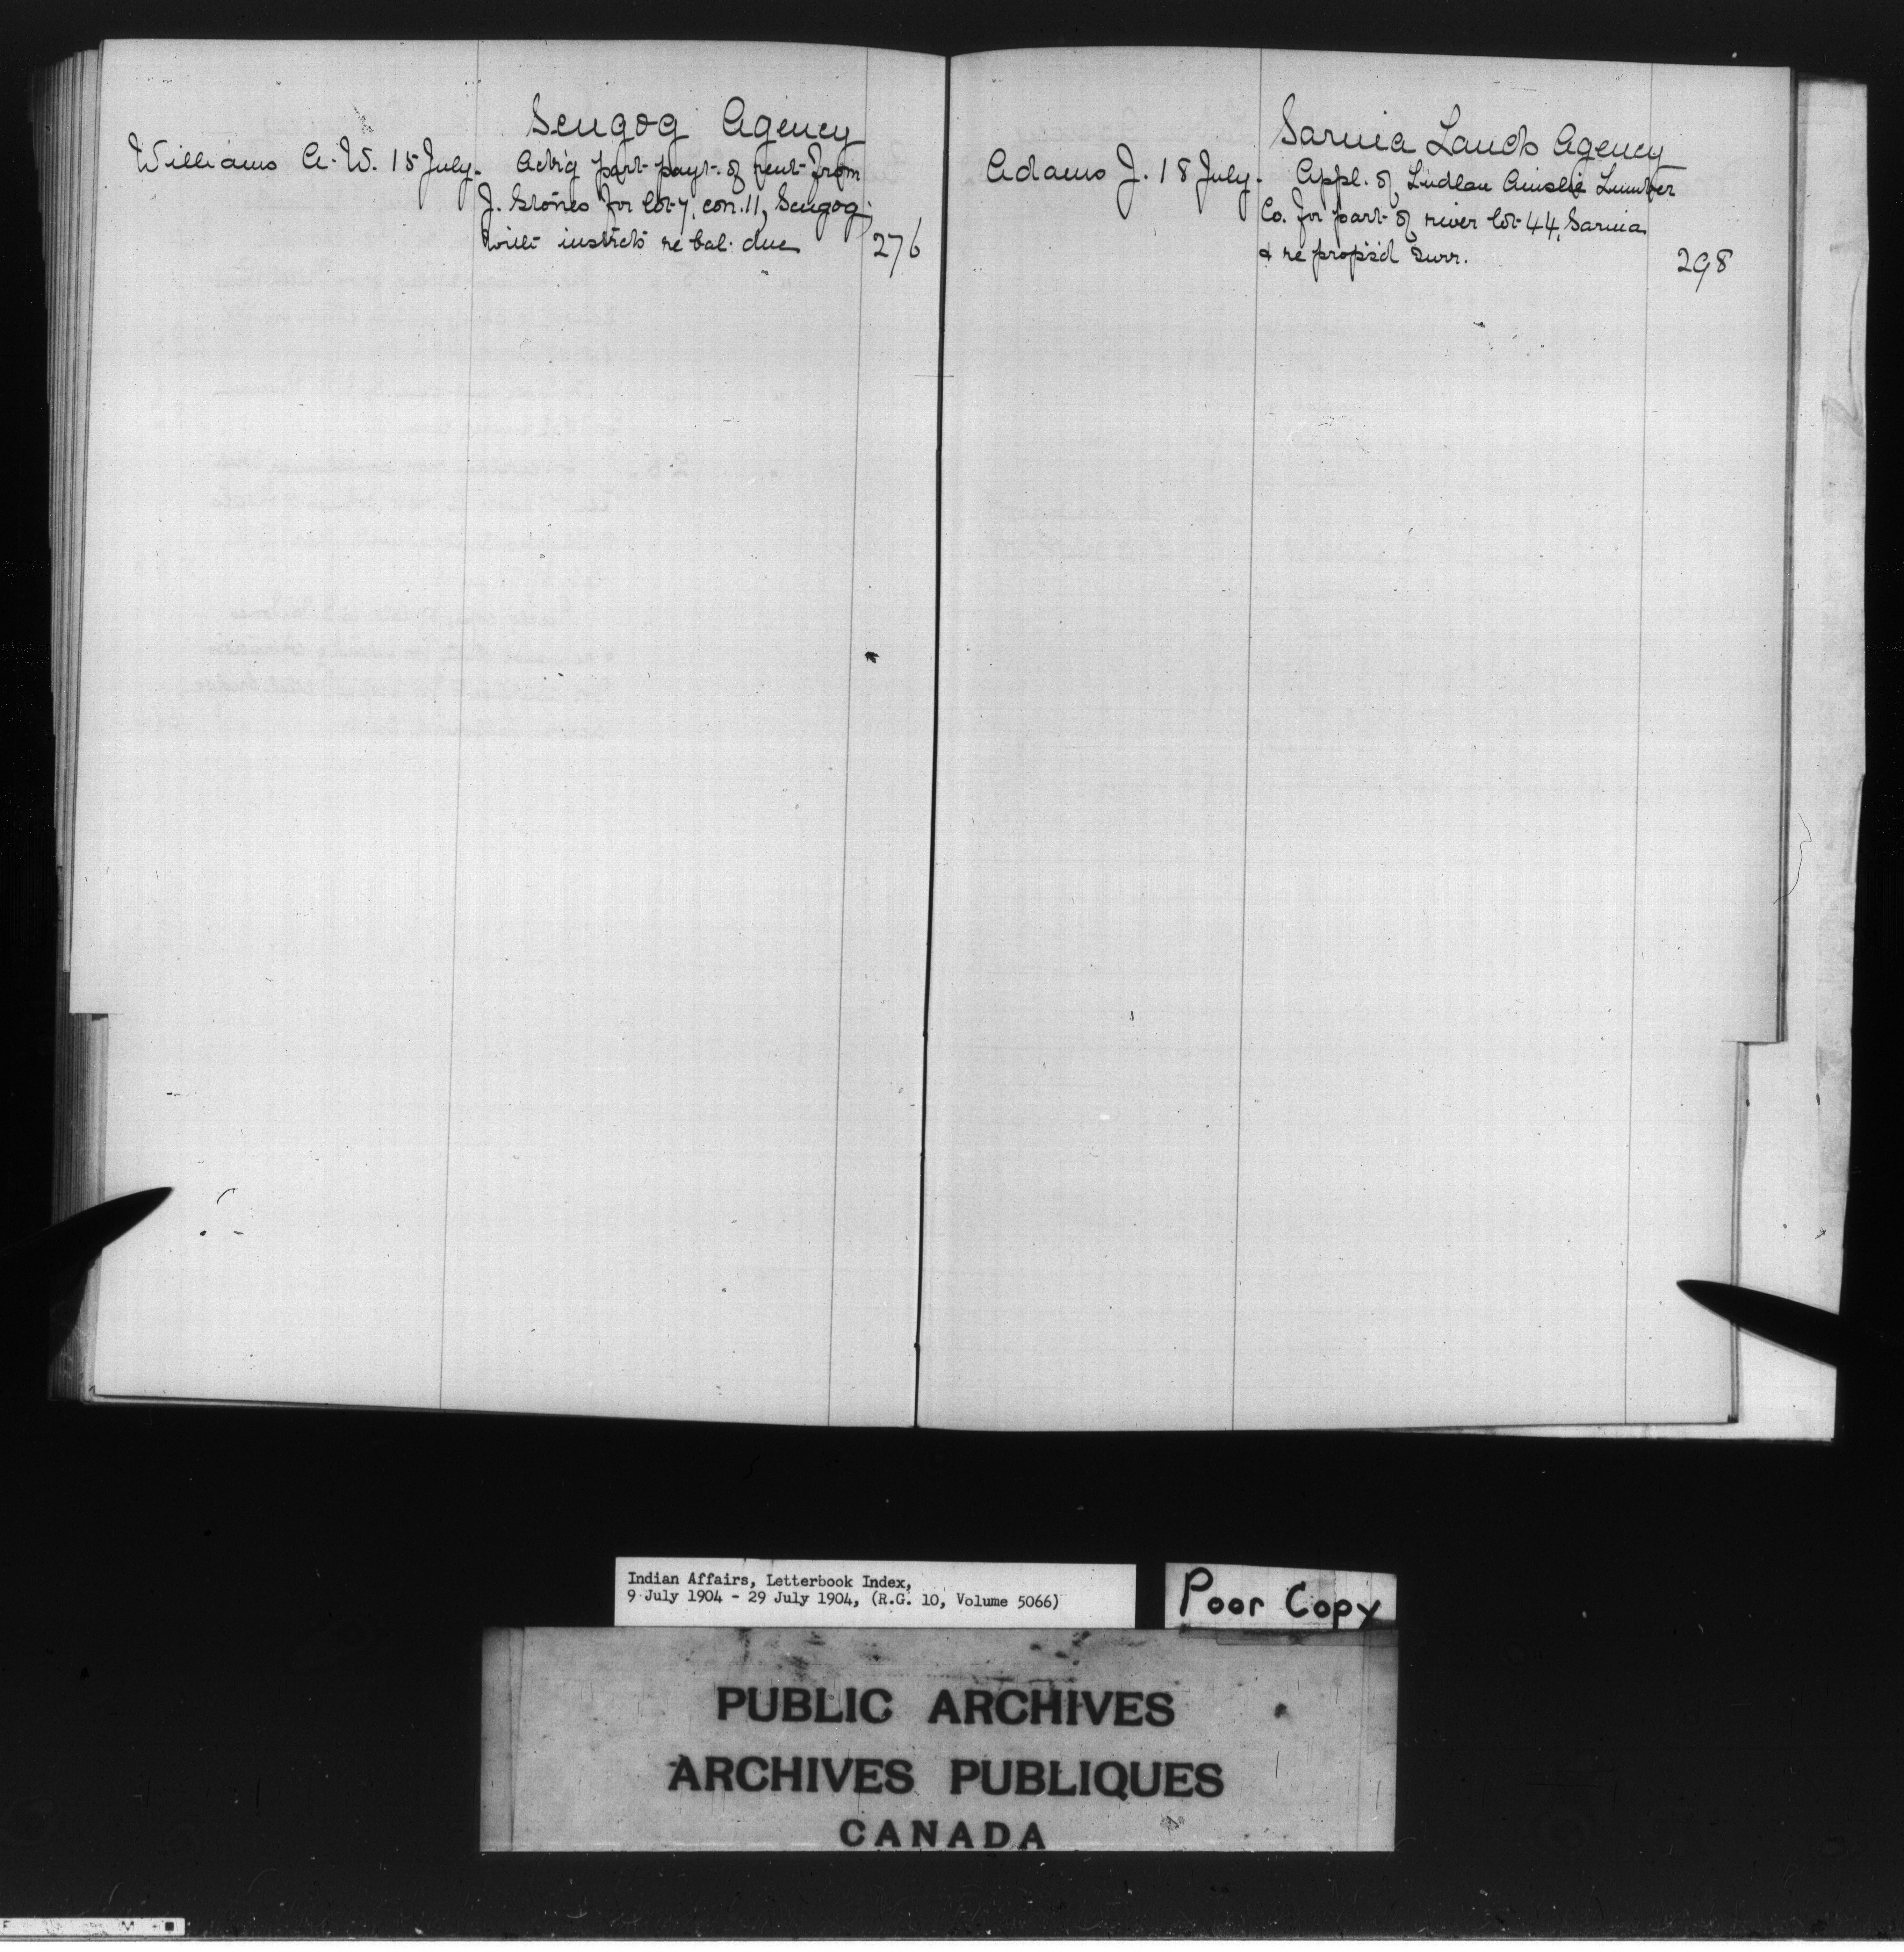 Scugog Agency
Williams A. W. 15 July. Ack'g part payt. of rent from
J. Stones for lot 7, con. 11, Scugog;
with instrcts re bal. due 276
Sarnia Lands Agency
Adams J. 18 July. Appl. of Ludlau Ainslie Lumber
Co. for part of river lot 44, Sarnia
& re propos'd surr. 298
Indian Affairs, Letterbook Index,
9 July 1904 - 29 July 1904, (R.G. 10, Volume 5066)
Poor Copy
PUBLIC ARCHIVES
ARCHIVES PUBLIQUES
CANADA